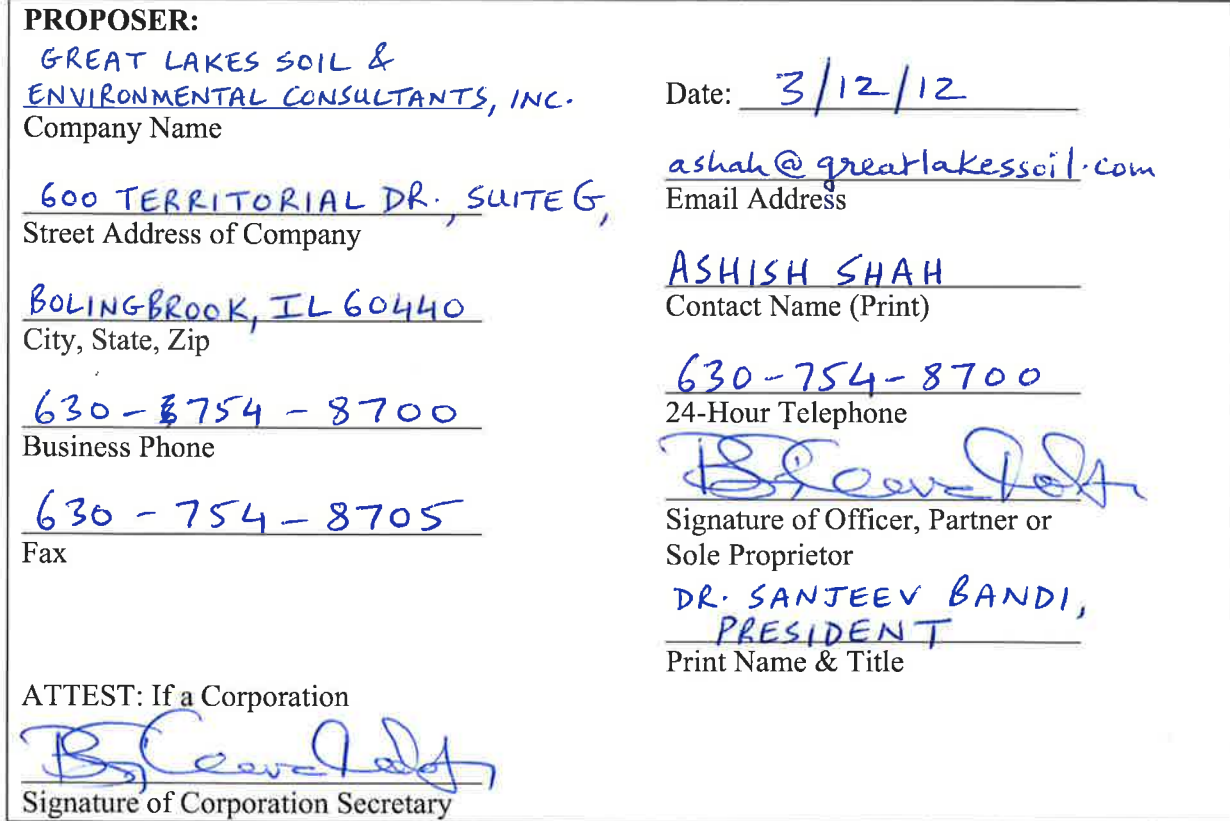 PROPOSER:
GREAT LAKES SOIL &
ENVIRONMENTAL CONSULTANTS, INC.
Company Name
600 TERRITORIAL DR., SUITE G,
Street Address of Company
BOLINGBROOK, IL 60440
City, State, Zip
630-754-8700
Business Phone
630-754-8705
Fax
ATTEST: If a Corporation
Signature of Corporation Secretary
Date: 3/12/12
ashah@greatlakessoil.com
Email Address
ASHISH SHAH
Contact Name (Print)
630-754-8700
24-Hour Telephone
Signature of Officer, Partner or
Sole Proprietor
DR. SANJEEV BANDI,
PRESIDENT
Print Name & Title